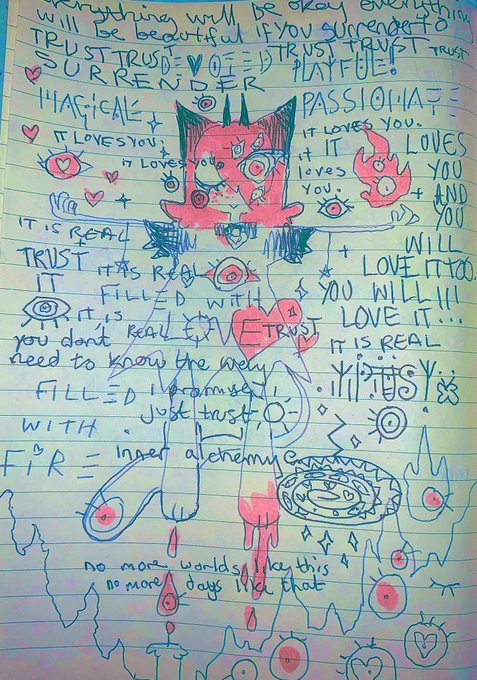 everything will be okay everything
will be beautiful if you surrender to
TRUST TRUST DEVOTED TRUST TRUST TRUST
SURRENDER PLAYFUL!
MAGICAL PASSIONATE
IT LOVES YOU
IT LOVES YOU.
IT LOVES YOU.
IT
loves
you.
LOVES
YOU
AND
YOU
WILL
LOVE IT TOO.
YOU WILL!!!
LOVE IT...
IT IS REAL
IT IS REAL
TRUST
IT
IT IS REAL
FILLED WITH
LOVE
IT IS REAL
TRUST
you don't
need to know the way
I promise!
just trust
FILLED
WITH
FIRE
inner alchemy
no more worlds like this
no more days like that